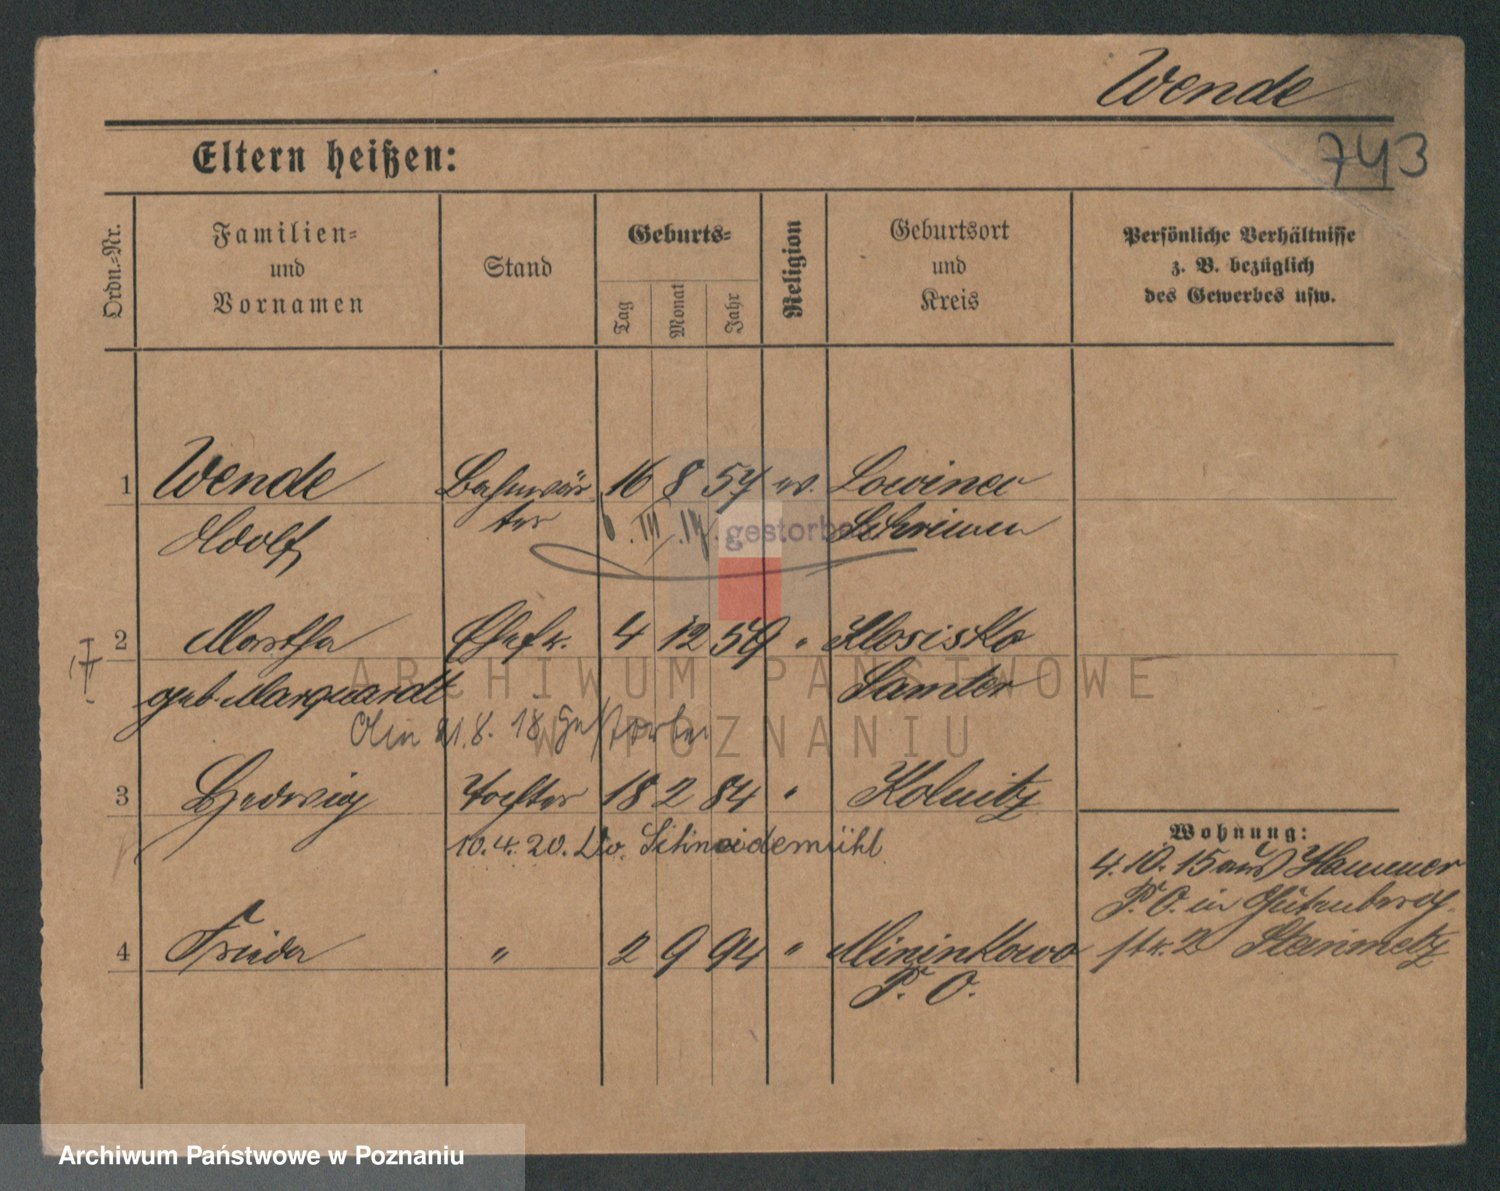 Wende
743
Eltern heißen:
Ordn.-Nr.
Familien-
und
Vornamen
Stand
Geburts-
Tag
Monat
Jahr
Religion
Geburtsort
und
Kreis
Persönliche Verhältnisse
z. B. bezüglich
des Gewerbes usw.
1 Wende Bahnwär 16 8 57 ev.
Adolf ter gestorben Schrimm
2 Martha Ehefr. 4 12 59 "
geb. Marquardt Samter
21.8.18 gestorben
3 Hedwig Tochter 18 2 84 " Kolnitz
10.4.20. Schneidemühl
Wohnung:
4.10.15 aus Hammer
P.O. in Gutenberg-
str. 2 Steinmetz
4 Frieda " 2 9 94 " Mininkowo
P. O.
ARCHIWUM PAŃSTWOWE
W POZNANIU
Archiwum Państwowe w Poznaniu